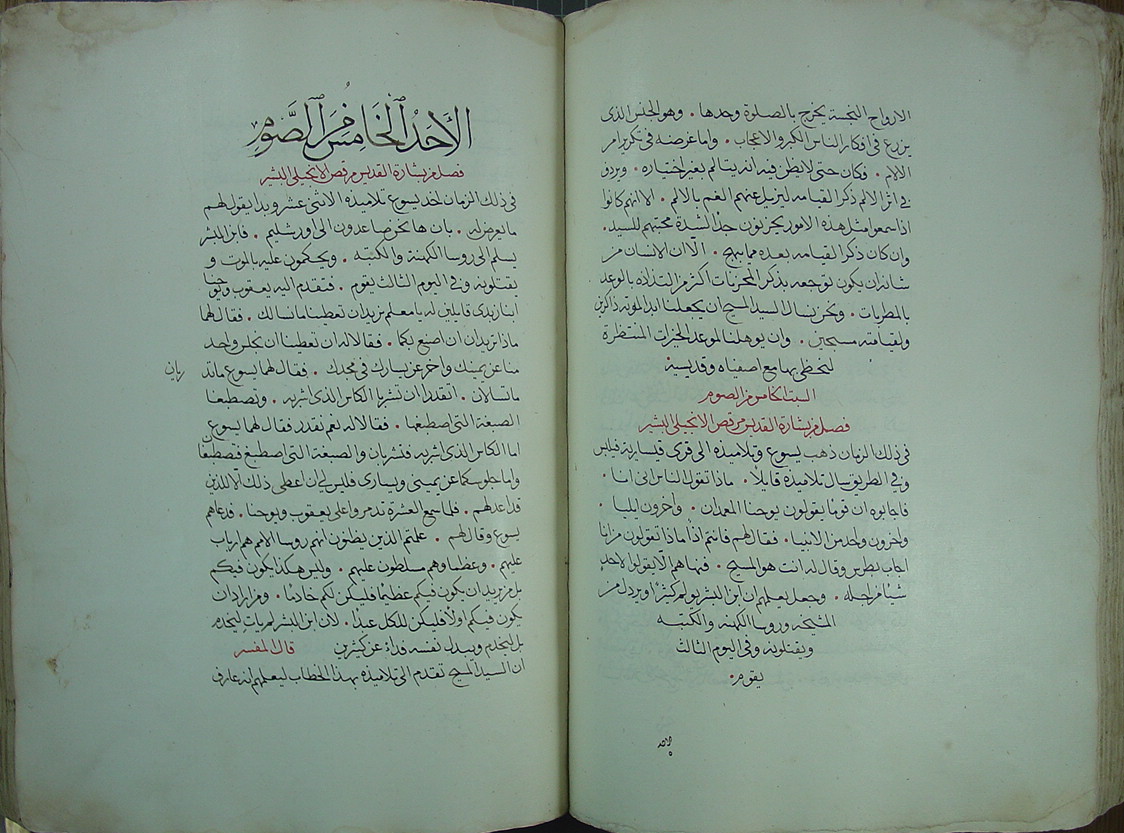 الارواح النجسة يخرج بالصلوة وحدها . وهو الجنس الذى
يزرع فى افكار الناس الكبر والاعجاب . واما غرضه فى تكرير امر
الالام . فكان حتى لا يظن فيه انه يتالم بغير اختياره . ويردف
فى اثر الالم ذكر القيامه ليزيل عنهم الغم بالالم . الا انهم كانوا
اذا سمعوا مثل هذه الامور يحزنون جدًا لشدة محبتهم للسيد .
وان كان ذكر القيامه بعده مما يبهج . الّا ان الانسان من
شانه ان يكون توجعه بذكر المحزنات اكثر من التذاذه بالوعد
بالمطربات . ونحن نسال السيد المسيح ان يجعلنا ابدا لموته ذاكرين
ولقيامته مسبحين . وان يوهلنا لموعد الخيرات المنتظرة
لنحظى بها مع اصفياه وقديسيه
السبت الخامس من الصوم
فصل من بشارة القديس مرقص الانجيلى البشير
فى ذلك الزمان ذهب يسوع وتلاميذه الى قرى قيسارية فيلبس
وفى الطريق سال تلاميذه قايلاً . ماذا تقول الناس انى انا .
فاجابوه ان قومًا يقولون يوحنا المعمدان . واخرون ايليا .
واخرون واحد من الانبيا . فقال لهم فانتم اذًا ماذا تقولون من انا
اجاب بطرس وقال له انت هو المسيح . فنهاهم الّا يقولوا لاحد
شيًا من اجله . وجعل يعلمهم ان ابن البشر يولم كثيرًا ويرذل من
المشيخه وروسا الكهنه والكتبه
ويقتلونه وفى اليوم الثالث
يقوم .
الاحد
الأَحَدُ الخَامسُ مِنَ الصَّوم
فصل من بشارة القديس مرقص الانجيلى البشير
فى ذلك الزمان اخذ يسوع تلاميذه الاثنى عشر وبدا يقول لهم
ما يعرض له . بان ها نحن صاعدون الى اورشليم . فابن البشر
يسلم الى روسا الكهنة والكتبه . ويحكمون عليه بالموت و
يقتلونه وفى اليوم الثالث يقوم . فتقدم اليه يعقوب ويوحنا
ابنا زبدى قايلين له يا معلم نريد ان تعطينا ما نسالك . فقال لهما
ماذا تريدان ان اصنع لكما . فقالا له ان تعطينا ان نجلس واحد
منا عن يمينك واخر عن يسارك فى مجدك . فقال لهما يسوع ما تد
ريان
ما تسالان . اتقدران ان تشربا الكاس الذى اشربه . وتصطبغا
الصبغة التى اصطبغها . فقالا له نعم نقدر فقال لهما يسوع
اما الكاس الذى اشربه فتشربان والصبغة التى اصطبغ فتصطبغان
واما جلوسكما عن يمينى ويسارى فليس لى ان اعطى ذلك الّا للذين
قد اعد لهم . فلما سمع العشرة تذمروا على يعقوب ويوحنا . فدعاهم
يسوع وقال لهم . علمتم الذين يظنون انهم روسا الامم هم ارباب
عليهم . وعظماوهم مسلطون عليهم . وليس هكذا يكون فيكم
بل من يريد ان يكون فيكم عظيمًا فليكن لكم خادمًا . ومن اراد ان
يكون فيكم اولًا فليكن للكل عبدًا . لان ابن البشر لم يات ليُخدم
بل ليخدم ويبذل نفسه فداءً عن كثيرين قال المفسر
ان السيد المسيح تقدم الى تلاميذه بهذا الخطاب ليعلمهم انه عارف